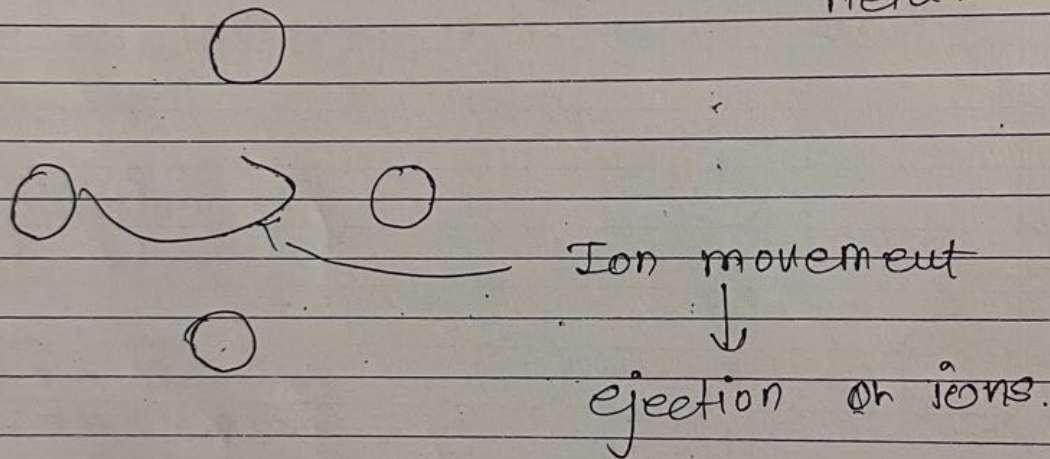 Ion movement
↓
ejection on ions.